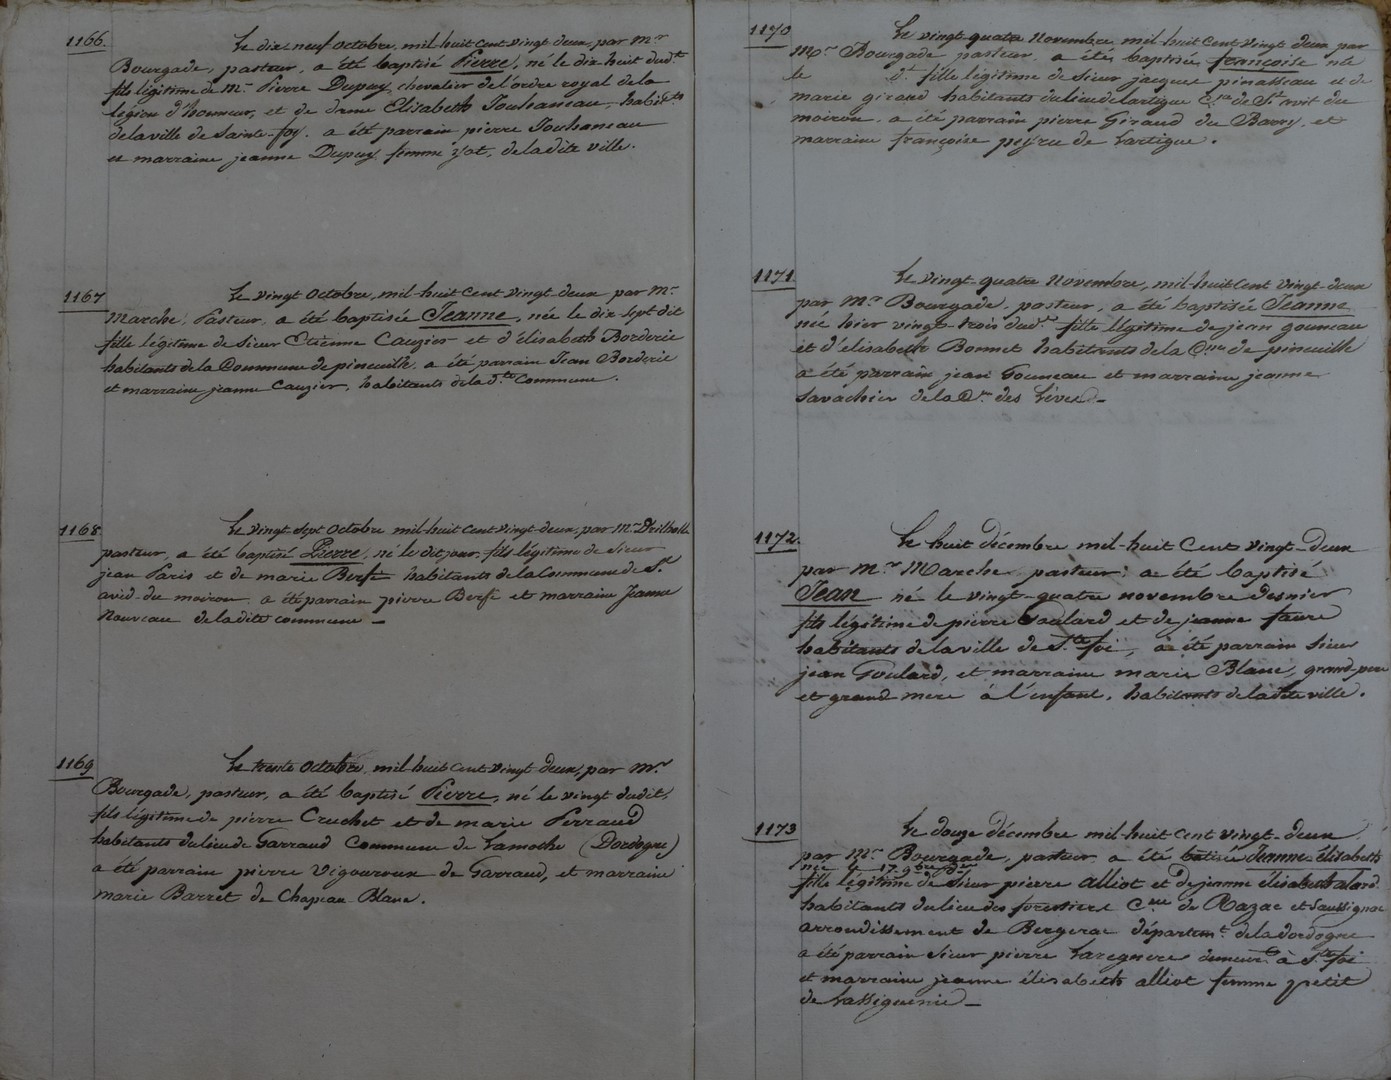 1166.
Le dix neuf octobre, mil-huit cent vingt deux, par Mr
Bourgade, pasteur, a été baptisé Pierre, né le dix huit dudt
fils légitime de Mr Pierre Dupuy, chevalier de l'ordre royal de la
légion d'honneur, et de dame Elisabeth Jouhaneau, habits
de la ville de Sainte-foy. a été parrain pierre Jouhaneau
et marraine jeanne Dupuy femme de la dite ville.
1167
Le vingt Octobre, mil-huit cent vingt-deux par Mr
Marche, Pasteur, a été baptisée Jeanne, née le dix sept dit
fille légitime de Sieur Etienne Cauzier et d'élisabeth Borderie
habitants de la Commune de pineuilh. a été parrain Jean Borderie
et marraine jeanne Cauzier, habitants de la dte Commune.
1168.
Le vingt-sept Octobre mil-huit cent-vingt-deux, par Mr
pasteur, a été baptisé Pierre, né le dit jour, fils légitime de Sieur
jean Paris et de marie habitants de la Commune de St
avid-du moiron. a été parrain pierre et marraine Jeanne
Nouveau de la dite commune -
1169
Le trente Octobre, mil-huit cent vingt deux, par Mr
Bourgade, pasteur, a été baptisé Pierre, né le vingt dudit,
fils légitime de pierre Cruchet et de marie Perraud
habitants du lieu de Garraud Commune de Lamothe (Dordogne)
a été parrain pierre Vigouroux de Garraud, et marraine
marie Barret de Chapeau Blanc.
1170
Le vingt quatre Novembre, mil-huit cent vingt deux par
Mr Bourgade pasteur a été baptisée françoise née
le dt fille légitime de Sieur jacques pinasseau et de
marie giraud habitants du lieu de lartigue Cne de St avit du
moiron. a été parrain pierre Giraud du Barry, et
marraine françoise peyru de Lartigue.
1171
Le vingt-quatre Novembre, mil-huit cent vingt-deux
par Mr Bourgade, pasteur, a été baptisée Jeanne
née hier vingt trois dudt fille légitime de jean gouneau
et d'élisabeth Bonnet habitants de la Cne de pineuilh
a été parrain jean Gouneau et marraine jeanne
Savachier de la Cne des Lèves -
1172.
Le huit décembre mil-huit Cent vingt-deux
par Mr Marche pasteur, a été baptisé
Jean né le vingt-quatre novembre dernier
fils légitime de pierre Goulard et de jeanne faure
habitants de la ville de Ste foi, a été parrain Sieur
jean Goulard, et marraine marie Blanc, grand-pere
et grand mere à l'enfant, habitants de la dite ville.
1173
Le douze décembre mil-huit cent vingt-deux
par Mr Bourgade, pasteur, a été batisée Jeanne élisabeth
née le 17. 9bre
fille légitime de Sieur pierre alliot et de jeanne élisabeth alard
habitants du lieu des forestiers Cne de Razac et Saussignac
arrondissement de Bergerac départemt de la dordogne
a été parrain Sieur pierre demeurt à Ste foi
et marraine jeanne élisabeth alliot femme petit
de -